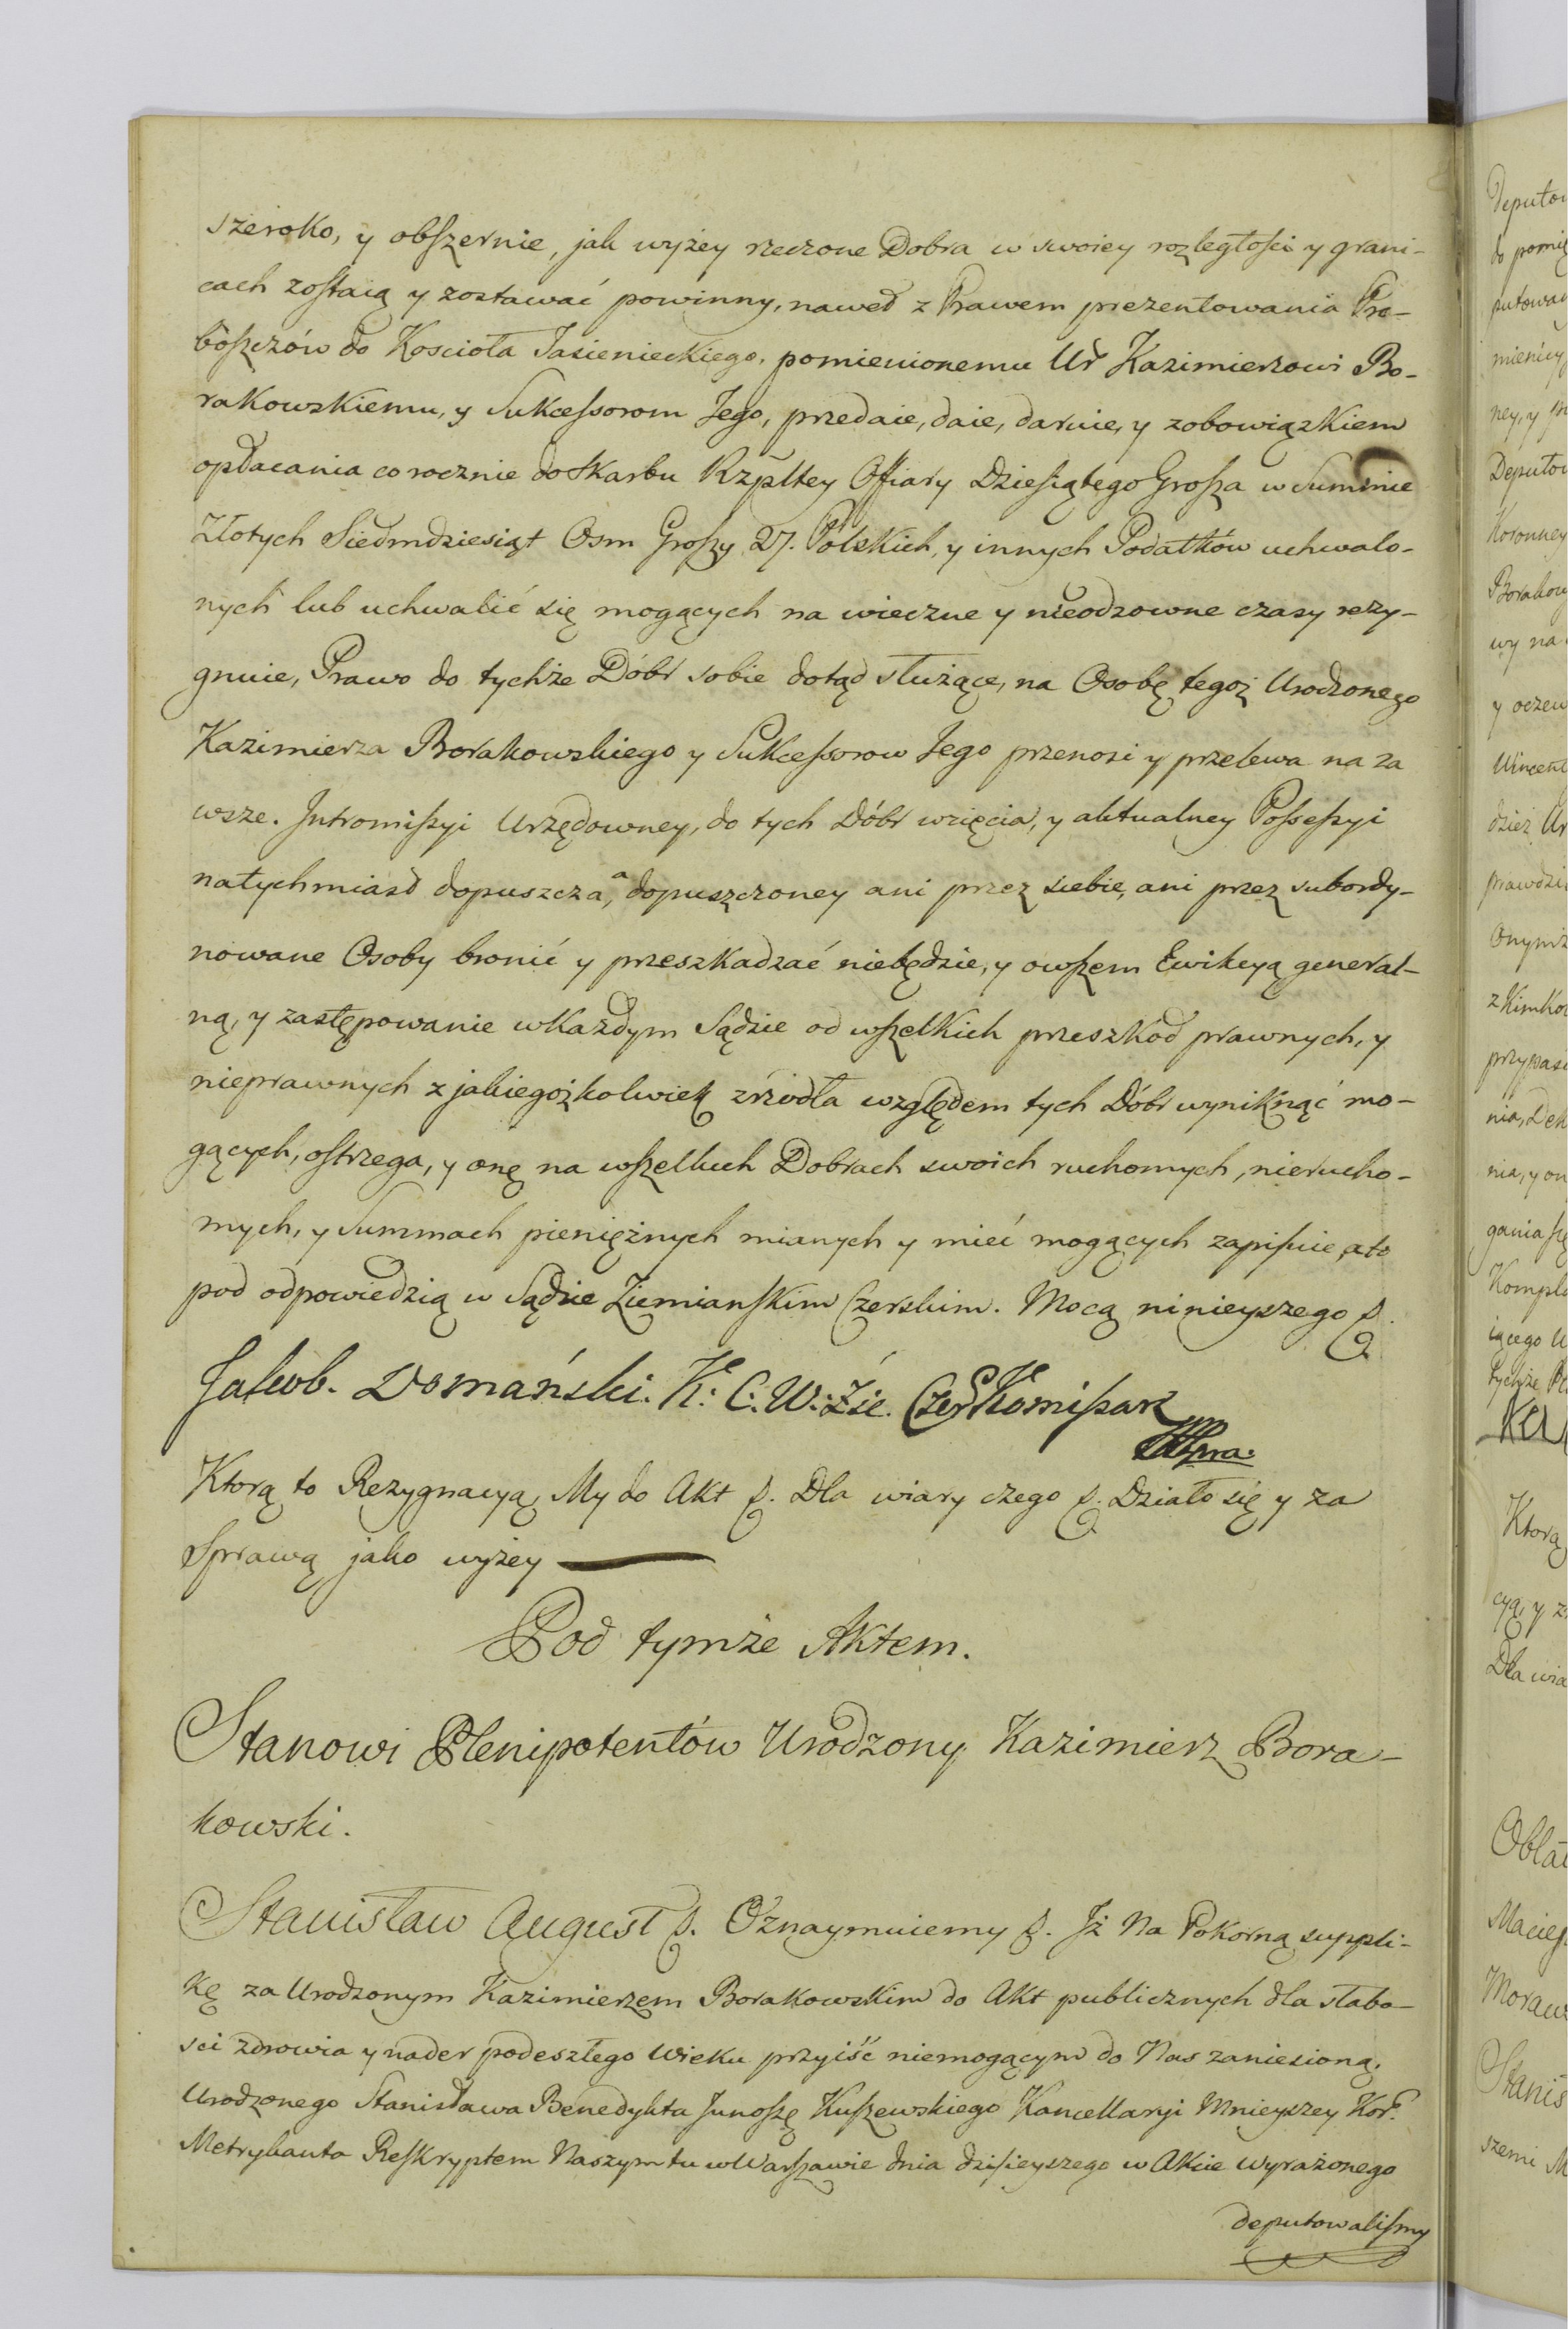 szeroko, y obſzernie, jak wyżey rzeczone Dobra w swoiey rozległości y grani-
cach zoſtaią y zostawać powinny, nawed z Prawem prezentowania Pro-
boſzczów do Kościoła Jasienieckiego, pomienionemu Ur Kazimierzowi Bo-
rakowskiemu, y Sukceſsorom Jego, przedaie, daie, daruie, y zobowiązkiem
opłacania co rocznie do Skarbu Rzpltey Offiary Dzieſiątego Groſza w Summie
Złotych Siedmdziesiąt Osm Groſzy 27. Polskich, y innych Podatków uchwalo-
nych lub uchwalić się mogących na wieczne y nieodzowne czasy rezy-
gnuie, Prawo do tychże Dóbr sobie dotąd służące, na Osobę tegoż Urodzonego
Kazimierza Borakowskiego y Sukceſsorow Jego przenosi y przelewa na za
wsze. Intromiſsyi Urzędowney, do tych Dóbr wzięcia, y aktualney Poſseſsyi
natychmiasd dopuszcza, a dopuszczoney ani przez siebie, ani przez subordy-
nowane Osoby bronić y przeszkadzać niebędzie, y owſzem Ewikcyą general-
ną, y zastępowanie w Każdym Sądzie od wſzelkich przeszkod prawnych, y
nieprawnych z jakiegożkolwiek zrzodła względem tych Dóbr wyniknąć mo-
gących, oſtrzega, y onę na wſzelkich Dobrach swoich ruchomych, nierucho-
mych, y Summach pieniężnych mianych y mieć mogących zapiſuie, a to
pod odpowiedzią w Sądzie Ziemianſkim Czerskim. Mocą ninieyszego p.
Jakub. Domański. K: C: W: Zie. Czer Komiſsarz
Ktorą to Rezygnacyą, My do Akt p. Dla wiary czego p. Działo się y za
Sprawą jako wyżey
Pod tymże Aktem.
Stanowi Plenipotentów Urodzony Kazimierz Bora-
kowski.
Stanisław August p. Oznaymuiemy p. Jż Na Pokorną suppli-
kę za Urodzonym Kazimierzem Borakowskim do Akt publicznych dla słabo-
sci zdrowia y nader podeszłego Wieku przyiść niemogącym do Nas zaniesioną,
Urodzonego Stanisława Benedykta Junoſzę Kuſzewskiego Kancellaryi Mnieyszey Kor:
Metrykanta Reſkryptem Naszym tu w Warſzawie dnia dziſieyszego w Akcie wyrażonego
deputowaliſmy